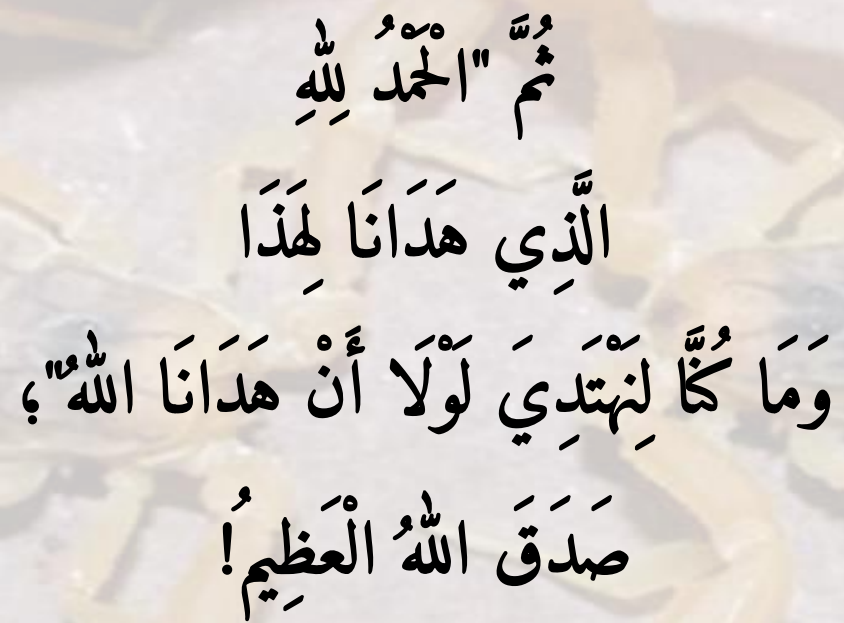 ثُمَّ "الْحَمْدُ لِلّٰهِ
الَّذِي هَدَانَا لِهَذَا
وَمَا كُنَّا لِنَهْتَدِيَ لَوْلَا أَنْ هَدَانَا اللّٰهُ"؛
صَدَقَ اللّٰهُ الْعَظِيمُ!